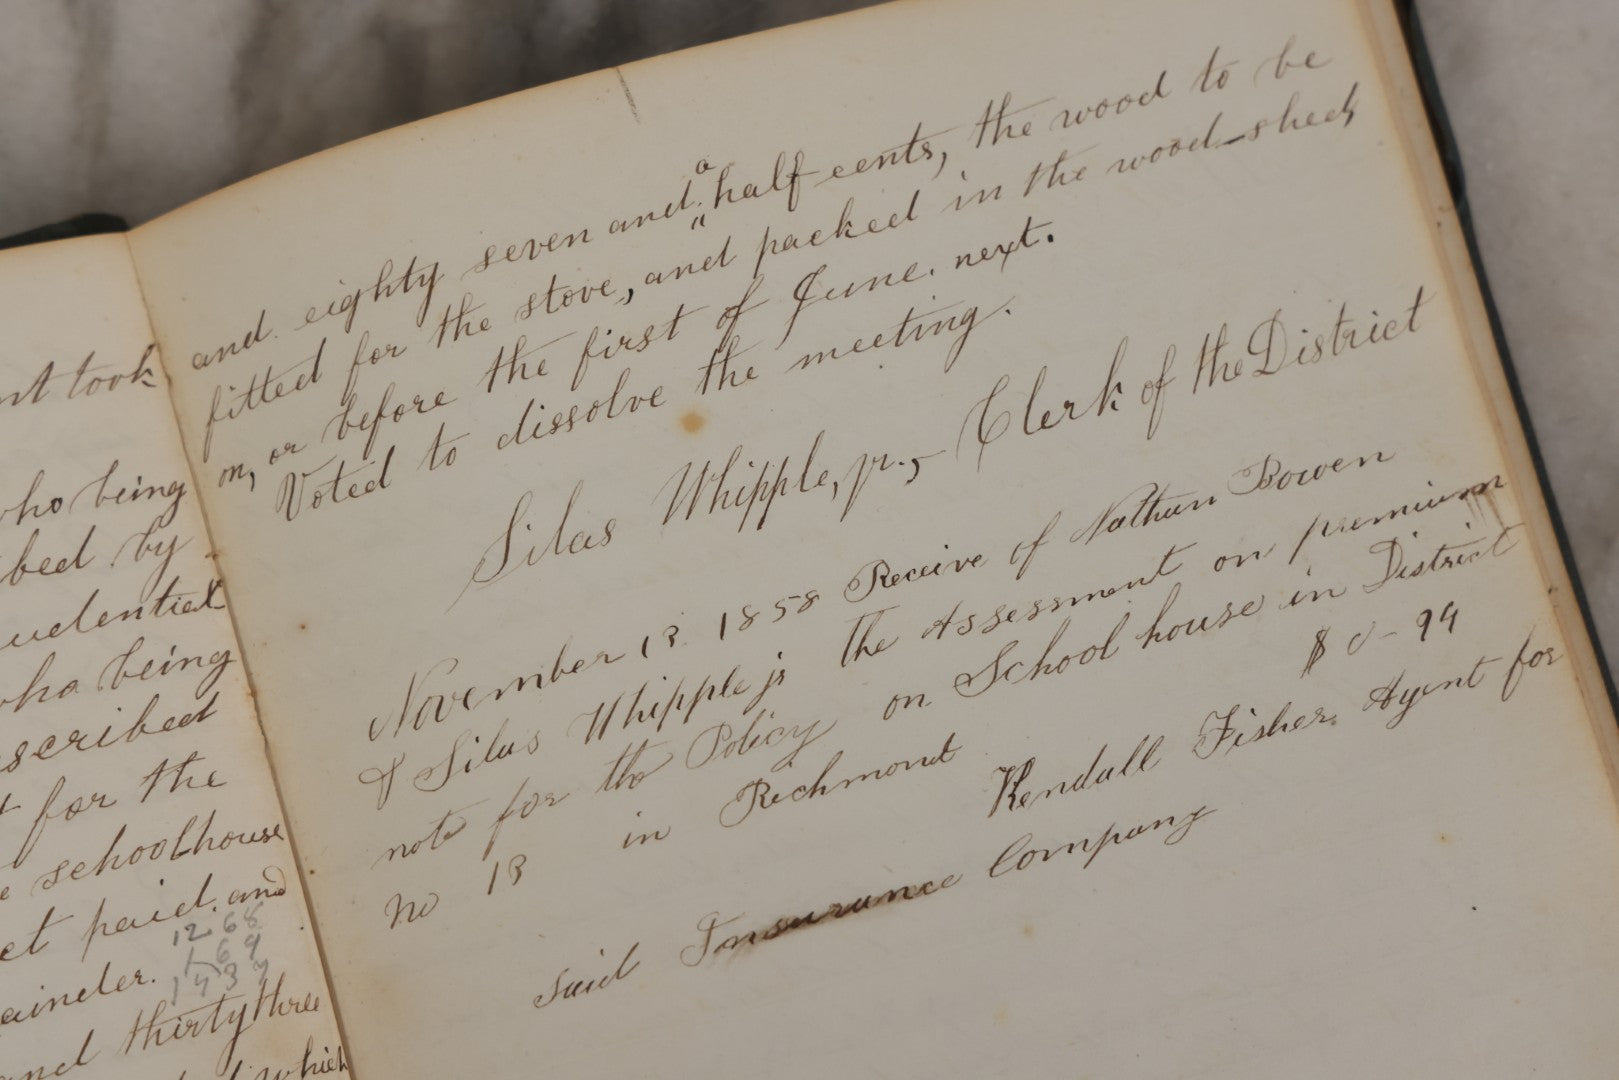 nt took
who being
bed by
udential
who being
scribed
t for the
e schoolhouse
et paid. and
ainder.
12.68
1 69
1437
and thirty three
which
and eighty seven and a half cents, the wood to be
fitted for the stove, and packed in the wood-shed,
on, or before the first of June. next.
Voted to dissolve the meeting.
Silas Whipple, jr., Clerk of the District
November 13. 1858 Receive of Nathan Bowen
& Silas Whipple jr the Assessment on premium
note for the Policy on School house in District
No 13 in Richmond $ 0-94
Kendall Fisher. Agent for
said Insurance Company